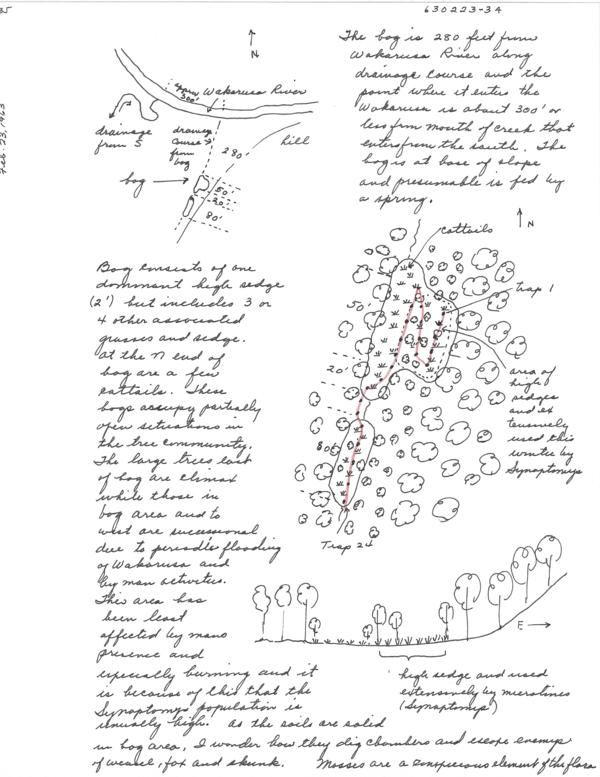 630223-34
Feb. 23, 1963
N
approx
300'
Wakarusa River
drainage
from S
drainage
course
from
bog
280'
hill
bog
50'
20'
80'
The bog is 280 feet from
Wakarusa River along
drainage course and the
point where it enters the
Wakarusa is about 300' or
less from mouth of creek that
enters from the south. The
bog is at base of slope
and presumable is fed by
a spring.
N
cattails
Trap 1
50'
20'
80'
area of
high
sedges
and ex
tensively
used this
winter by
Synaptomys
Trap 24
Bog consists of one
dominant high sedge
(2') but includes 3 or
4 other associated
grasses and sedge.
At the N end of
bog are a few
cattails. These
bogs occupy partially
open situations in
the tree community.
The large trees east
of bog are climax
while those in
bog area and to
west are successional
due to periodic flooding
of Wakarusa and
by man activities.
This area has
been least
affected by mans
presence and
especially burning and it
is because of this that the
Synaptomys population is
unusually high. As the soils are solid
in bog area, I wonder how they dig chambers and escape enemys
of weasel, fox and skunk. Mosses are a conspicuous element of the flora
E
high sedge and used
extensively by microtines
(Synaptomys)